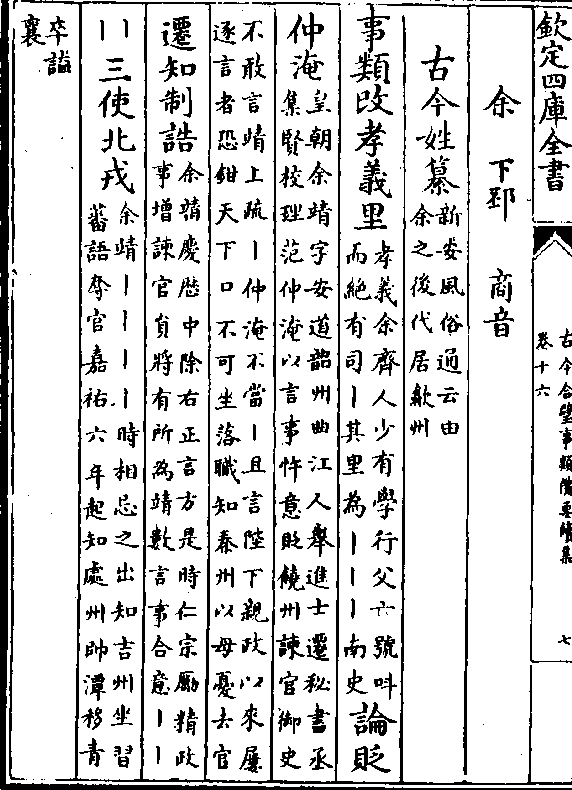 欽定四庫全書
古今合璧事類備要續集
卷十六
七
余 下邳 商音
古今姓纂新安風俗通云由
余之後代居歙州
事類改孝義里孝義余齊人少有學行父亡號呌
而絶有司丨其里為丨丨丨南史論貶
仲淹皇朝余靖字安道韶州曲江人舉進士遷秘書丞
集賢校理范仲淹以言事忤意貶饒州諫官御史
不敢言靖上疏丨仲淹不當丨且言陛下親政以來屢
逐言者恐鉗天下口不可坐落職知泰州以母憂去官
遷知制誥余靖慶歴中除右正言方是時仁宗勵精政
事增諫官員將有所為靖數言事合意丨丨
丨丨三使北戎余靖丨丨丨丨時相忌之出知吉州坐習
蕃語奪官嘉祐六年起知處州帥潭移青
卒謚
襄